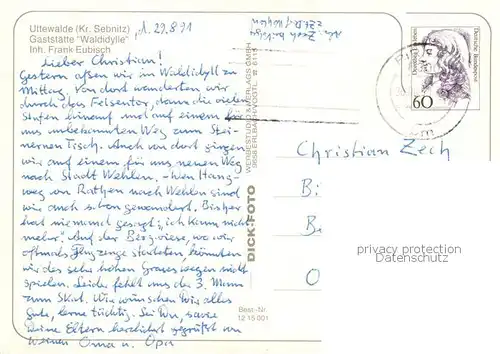 Uttewalde (Kr. Sebnitz)
Gaststätte "Waldidylle"
Inh. Frank Eubisch
d. 29.8.91
Lieber Christian!
Gestern aßen wir im Waldidyll zu
Mittag. Von dort wanderten wir
durch das Felsentor, dann die vielen
Stufen hinauf und auf einem für
uns unbekannten Weg zum Stei-
nernen Tisch. Auch von dort gingen
wir auf einem für uns neuen Weg
nach Stadt Wehlen. Den Hang-
weg von Rathen nach Wehlen sind
wir auch schon gewandert. Bisher
hat niemand gesagt: „ich kann nicht
mehr". Auf der Bergwiese, wo wir
oftmals Flugzeuge starteten, konnten
wir des sehr hohen Grases wegen nicht
spielen. Leider fehlt uns der 3. Mann
zum Skat. Wir wünschen Dir alles
Gute, lerne tüchtig. Sei Du, sowie
Deine Eltern herzlichst gegrüßt von
Deinen Oma u. Opa
DICK-FOTO
WERBESTUDIO & VERLAGS GMBH
9658 ERLBACH/VOGTL.
Best.-Nr.
12 15 001
Deutsche Bundespost
60
Christian Zech
Bi
B
O
privacy protection
Datenschutz